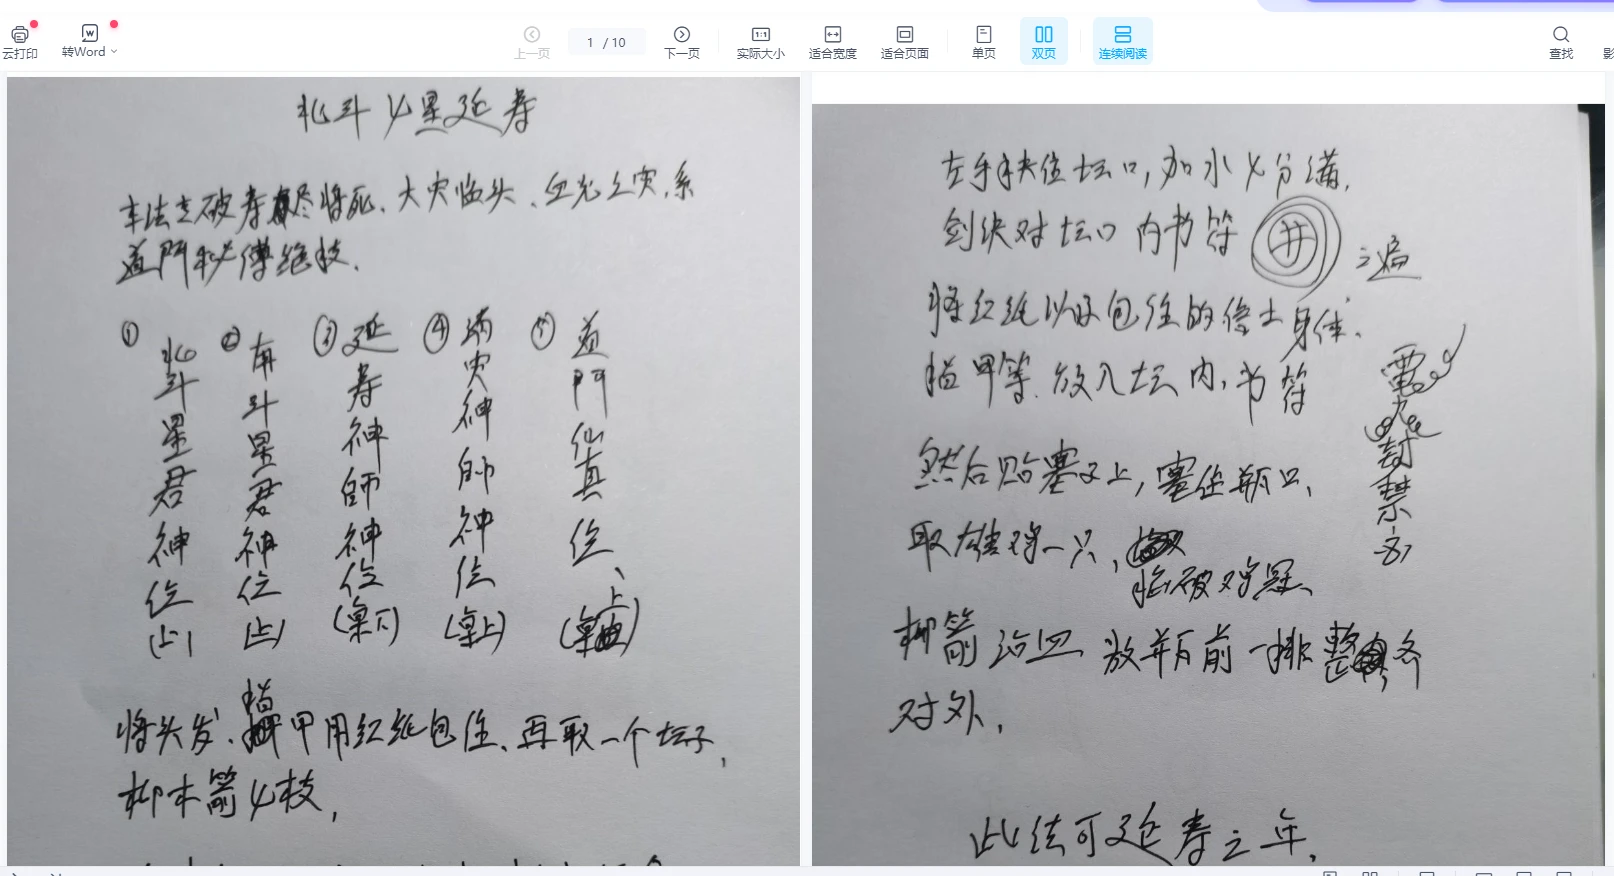 云打印
转Word
上一页
1 / 10
下一页
实际大小
适合宽度
适合页面
单页
双页
连续阅读
查找
北斗七星延寿
本法专破寿尽将死、大灾临头、血光之灾,系
道門秘傳绝技.
① 北斗星君神位(上)
② 南斗星君神位(上)
③ 延寿神師神位(桌下)
④ 消灾神師神位(桌上)
⑤ 道門仙真位、(桌上)
将头发、指甲用红纸包住、再取一个坛子,
柳木箭七枝,
左手抉位坛口,加水七分满,
剑诀对坛口内书符 井 三遍
将红纸以及包住的信士身体、
指甲等.放入坛内,书符
然后贴塞子上,塞住瓶口、
取雄鸡一只,
掐破鸡冠、
柳箭沾血 放瓶前一排整齐
对外.
此法可延寿三年.